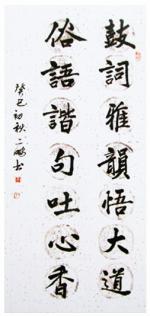 鼓詞雅韻悟大道
俗語諧句吐心香
癸巳初秋二鵬書